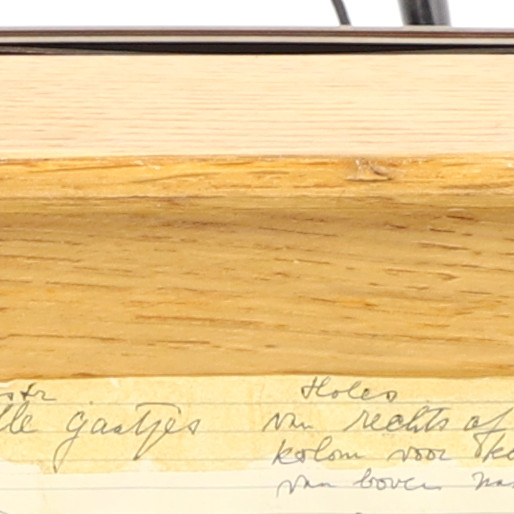 lle gaatjes
Holes
van rechts af
kolom voor
van boven